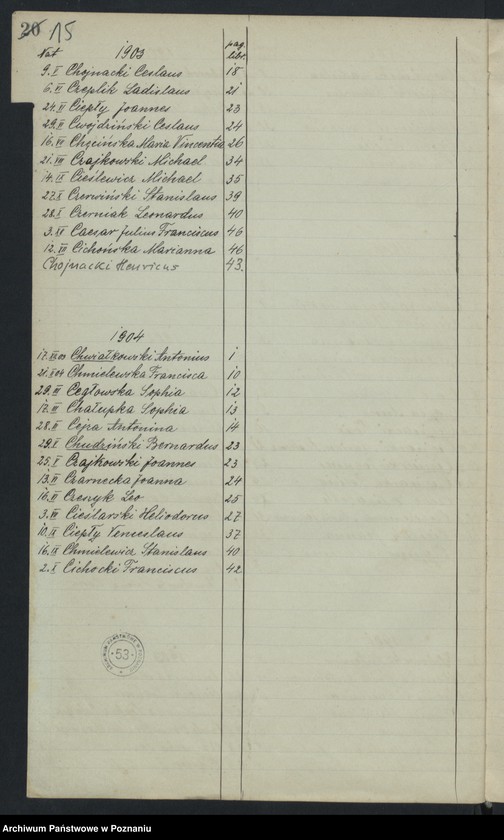 20 15
Nat 1903 pag. libr.
9. I Chojnacki Ceslaus 18
6. VI Czeplik Ladislaus 21
24. VI Ciepły Joannes 23
29. VI Cwojdziński Ceslaus 24
16. VII Chęcińska Maria Vincentia 26
21. VIII Czajkowski Michael 34
14. IX Cieślewicz Michael 35
27. X Czerwiński Stanislaus 39
28. X Czerniak Leonardus 40
3. XII Caesar Julius Franciscus 46
12. XII Cichońska Marianna 46
Chojnacki Henricus 43.
1904
17. XII 03 Chwiałkowski Antonius 1
21. I 04 Chmielewska Francisca 10
29. III Cegłowska Sophia 12
17. III Chałupka Sophia 13
28. II Cejra Antonina 14
29. I Chudziński Bernardus 23
25. V Czajkowski Joannes 23
13. VI Czarnecka Joanna 24
16. VI Czenyk Leo 25
3. VII Cieślarski Heliodorus 27
10. IX Ciepły Venceslaus 37
16. IX Chmielewicz Stanislaus 40
2. X Cichocki Franciscus 42
53
Archiwum Państwowe w Poznaniu